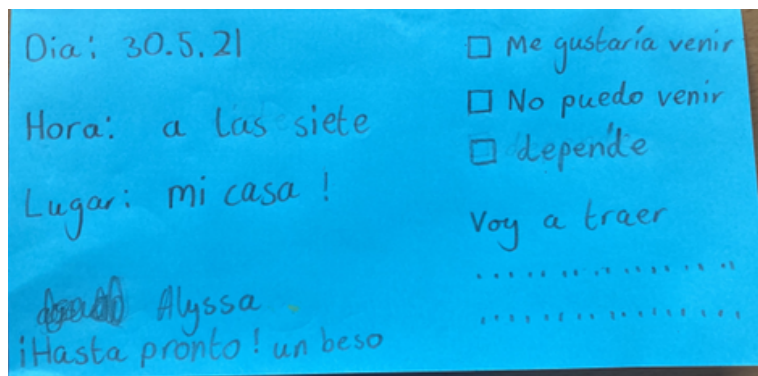 Dia: 30.5.21
Hora: a las siete
Lugar: mi casa!
Alyssa
¡Hasta pronto! un beso
☐ Me gustaría venir
☐ No puedo venir
☐ depende
Voy a traer
..................
..................